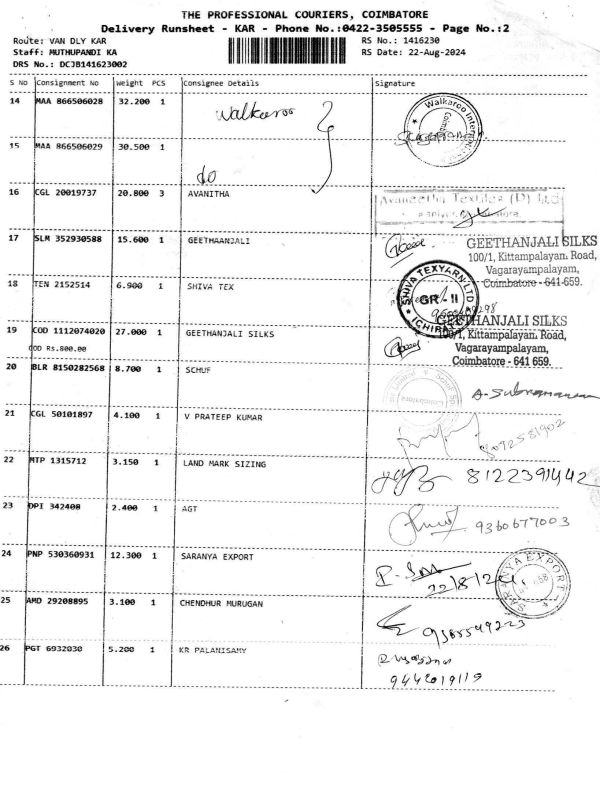 THE PROFESSIONAL COURIERS, COIMBATORE
Delivery Runsheet - KAR - Phone No.:0422-3505555 - Page No.:2
Route: VAN DLY KAR RS No.: 1416230
Staff: MUTHUPANDI KA RS Date: 22-Aug-2024
DRS No.: DCJB141623002
S No Consignment No Weight PCS Consignee Details Signature
14 MAA 866506028 32.200 1 Walkaroo
Walkaroo
15 MAA 866506029 30.500 1
do
16 CGL 20019737 20.800 3 AVANITHA
17 SLM 352930588 15.600 1 GEETHAANJALI
GEETHANJALI SILKS
100/1, Kittampalayan. Road,
Vagarayampalayam,
Coimbatore - 641-659.
18 TEN 2152514 6.900 1 SHIVA TEX
SHIVA TEXYARN LTD
GR - II
19 COD 1112074020 27.000 1 GEETHANJALI SILKS
COD Rs.800.00
GEETHANJALI SILKS
100/1, Kittampalayan. Road,
Vagarayampalayam,
Coimbatore - 641 659.
20 BLR 8150282568 8.700 1 SCHUF
A. Subramanian
21 CGL 50101897 4.100 1 V PRATEEP KUMAR
8092581902
22 MTP 1315712 3.150 1 LAND MARK SIZING
8122391442
23 DPI 342408 2.400 1 AGT
9360677003
24 PNP 530360931 12.300 1 SARANYA EXPORT
22/8/24
SARANYA EXPORT
25 AMD 29208895 3.100 1 CHENDHUR MURUGAN
26 PGT 6932030 5.200 1 KR PALANISAMY
9442019119